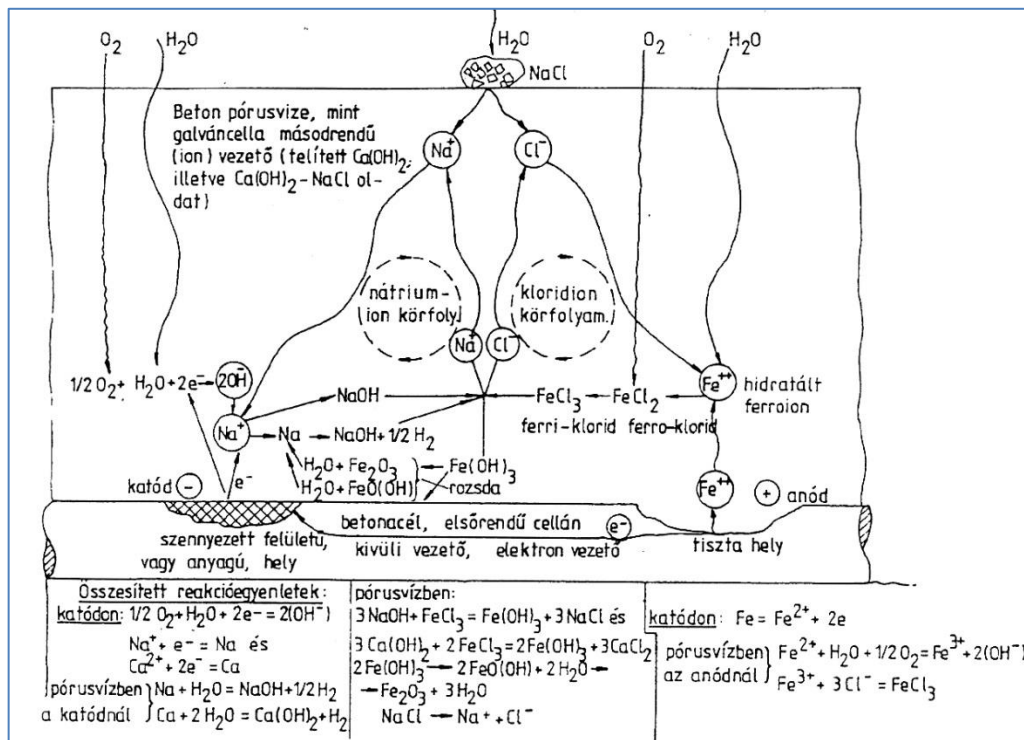 O₂
H₂O
H₂O
O₂
H₂O
NaCl
Beton pórusvize, mint
galváncella másodrendű
(ion) vezető (telített Ca(OH)₂,
illetve Ca(OH)₂-NaCl ol-
dat)
Na⁺
Cl⁻
nátrium-
ion körfoly.
kloridion
körfolyam.
Na⁺
Cl⁻
1/2 O₂+ H₂O+2e⁻→
2OH⁻
Fe⁺⁺
hidratált
ferroion
NaOH
FeCl₃ ← FeCl₂
ferri-klorid ferro-klorid
Na⁺ → Na → NaOH+1/2 H₂
H₂O+Fe₂O₃
Fe(OH)₃
H₂O+FeO(OH)
rozsda
Fe⁺⁺
katód −
e⁻
+ anód
betonacél, elsőrendű cellán
e⁻
kivüli vezető, elektron vezető
szennyezett felületű,
vagy anyagú, hely
tiszta hely
Összesített reakcióegyenletek:
katódon: 1/2 O₂+H₂O+2e⁻=2(OH⁻)
Na⁺+e⁻=Na és
Ca²⁺+2e⁻=Ca
pórusvízben } Na+H₂O=NaOH+1/2H₂
a katódnál } Ca+2H₂O=Ca(OH)₂+H₂
pórusvízben:
3NaOH+FeCl₃=Fe(OH)₃+3NaCl és
3Ca(OH)₂+2FeCl₃=2Fe(OH)₃+3CaCl₂
2Fe(OH)₃→2FeO(OH)+2H₂O→
→Fe₂O₃+3H₂O
NaCl→Na⁺+Cl⁻
katódon: Fe=Fe²⁺+2e
pórusvízben } Fe²⁺+H₂O+1/2O₂=Fe³⁺+2(OH⁻)
az anódnál } Fe³⁺+3Cl⁻=FeCl₃